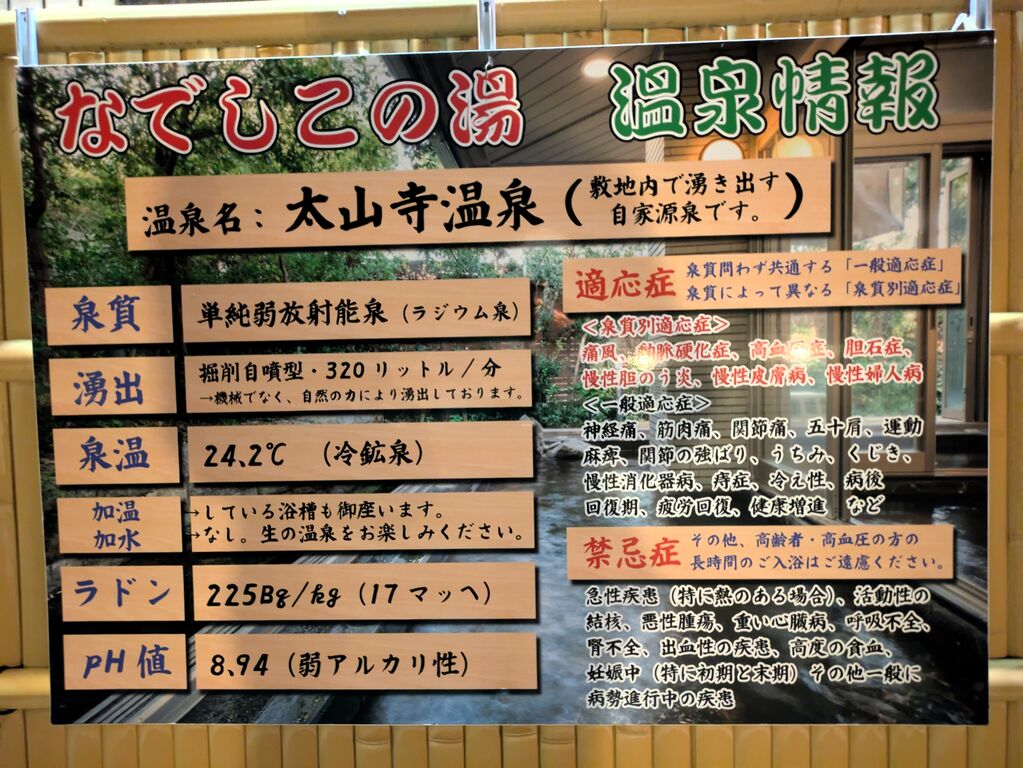 なでしこの湯 温泉情報
温泉名: 太山寺温泉 (敷地内で湧き出す
自家源泉です。)
泉質 単純弱放射能泉 (ラジウム泉)
湧出 掘削自噴型・320リットル/分
→機械でなく、自然の力により湧出しております。
泉温 24.2℃ (冷鉱泉)
加温 →している浴槽も御座います。
加水 →なし。生の温泉をお楽しみください。
ラドン 225Bg/kg (17マッヘ)
pH値 8.94 (弱アルカリ性)
適応症 泉質問わず共通する「一般適応症」
泉質によって異なる「泉質別適応症」
<泉質別適応症>
痛風、動脈硬化症、高血圧症、胆石症、
慢性胆のう炎、慢性皮膚病、慢性婦人病
<一般適応症>
神経痛、筋肉痛、関節痛、五十肩、運動
麻痺、関節の強ばり、うちみ、くじき、
慢性消化器病、痔症、冷え性、病後
回復期、疲労回復、健康増進 など
禁忌症 その他、高齢者・高血圧の方の
長時間のご入浴はご遠慮ください。
急性疾患 (特に熱のある場合)、活動性の
結核、悪性腫瘍、重い心臓病、呼吸不全、
腎不全、出血性の疾患、高度の食血、
妊娠中 (特に初期と末期) その他一般に
病勢進行中の疾患